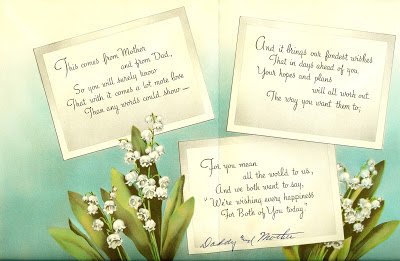 This comes from Mother
and from Dad,
So you will surely know
That with it comes a lot more love
Than any words could show—
And it brings our fondest wishes
That in days ahead of you
Your hopes and plans
will all work out
The way you want them to;
For you mean
all the world to us,
And we both want to say,
"We're wishing every happiness
For Both of You today."
Daddy and Mother